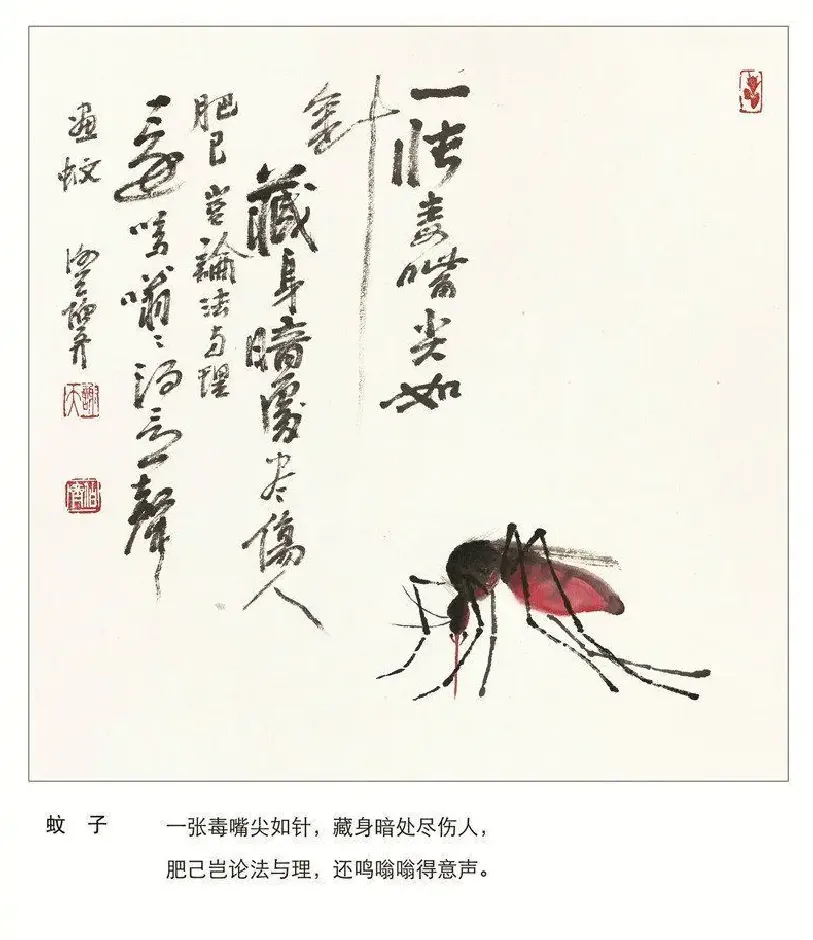 一张毒嘴尖如
針
藏身暗處尽傷人
肥己豈論法与理
還鸣嗡〻得意聲
畫蚊
蚊 子
一张毒嘴尖如针，藏身暗处尽伤人，
肥己岂论法与理，还鸣嗡嗡得意声。